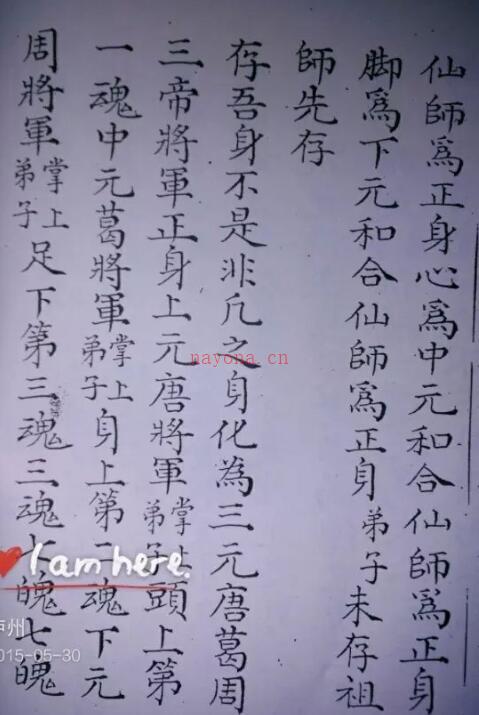 仙師爲正身心爲中元和合仙師爲正身
脚爲下元和合仙師爲正身弟子未存祖
師先存
存吾身不是非凢之身化為三元唐葛周
三帝將軍正身上元唐將軍弟子掌上頭上第
一魂中元葛將軍弟子掌上身上第二魂下元
周將軍弟子掌上足下第三魂三魂七魄七魄
nayona.cn
I am here.
州
015-05-30